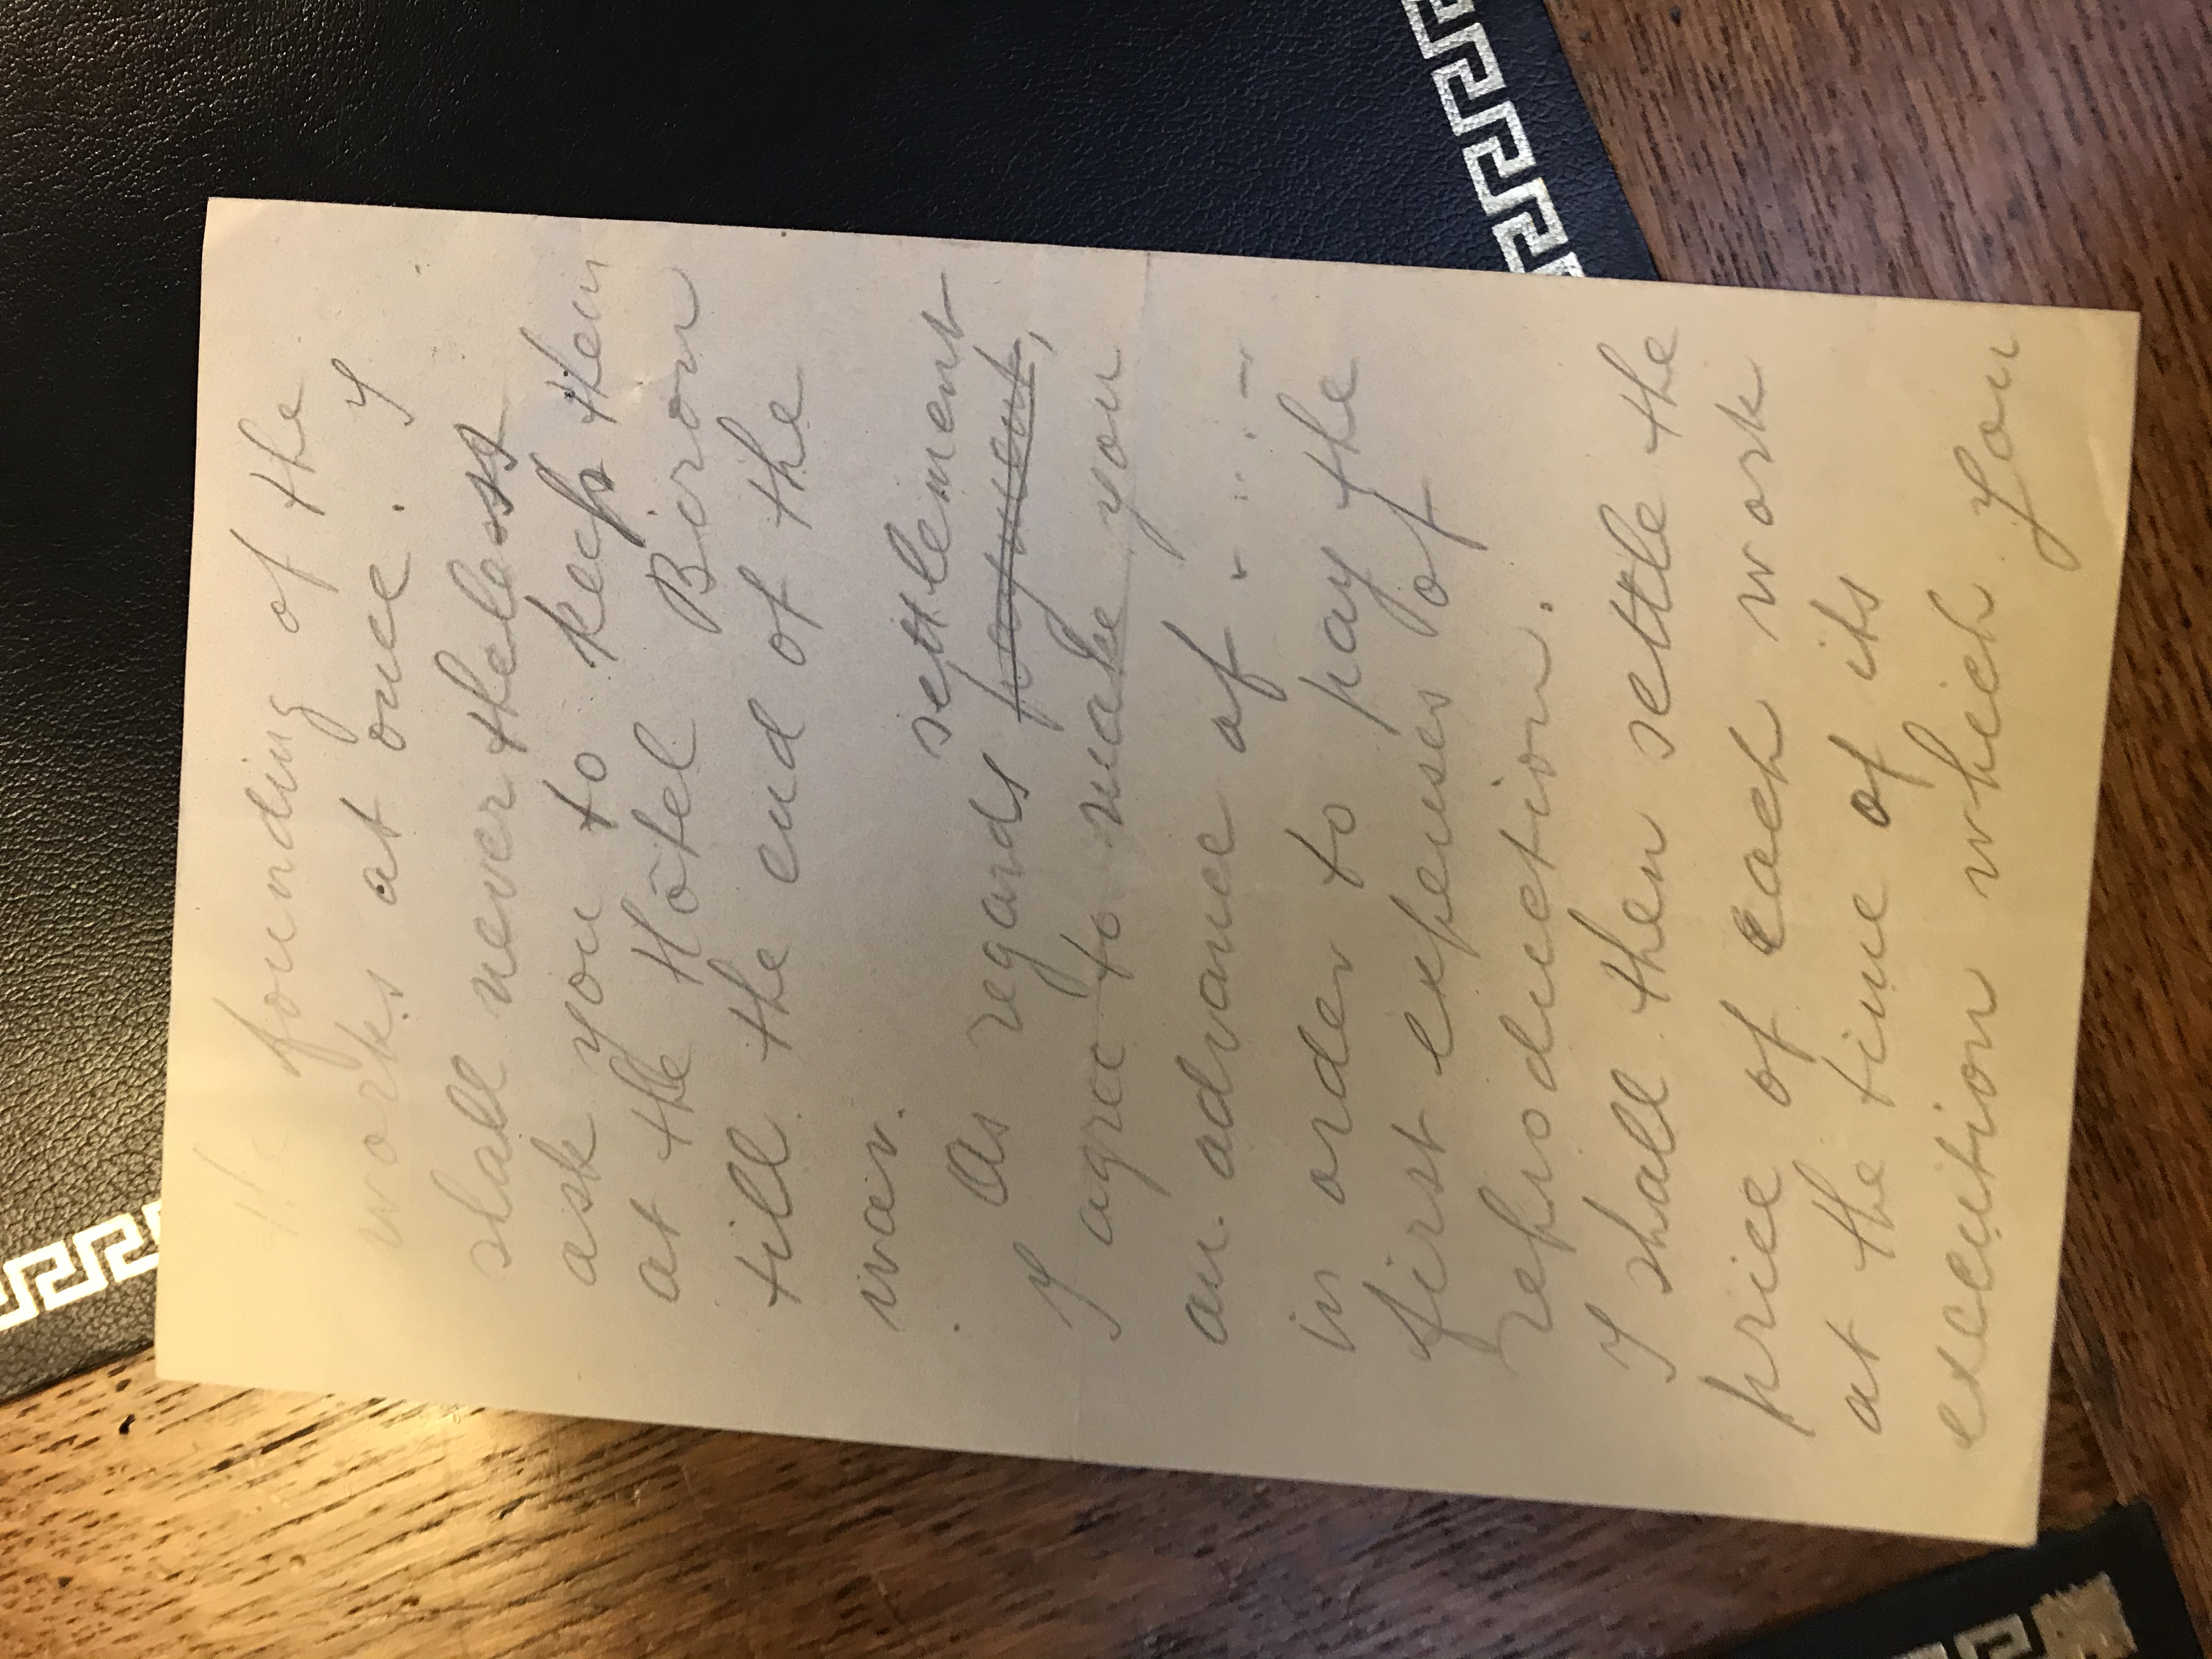 the founding of the
works at once. I
shall nevertheless
ask you to keep them
at the Hôtel Biron
till the end of the
war.
settlement
As regards payment,
I agree to make you
an advance of
in order to pay the
first expenses of
reproduction.
I shall then settle the
price of each work
at the time of its
execution which you